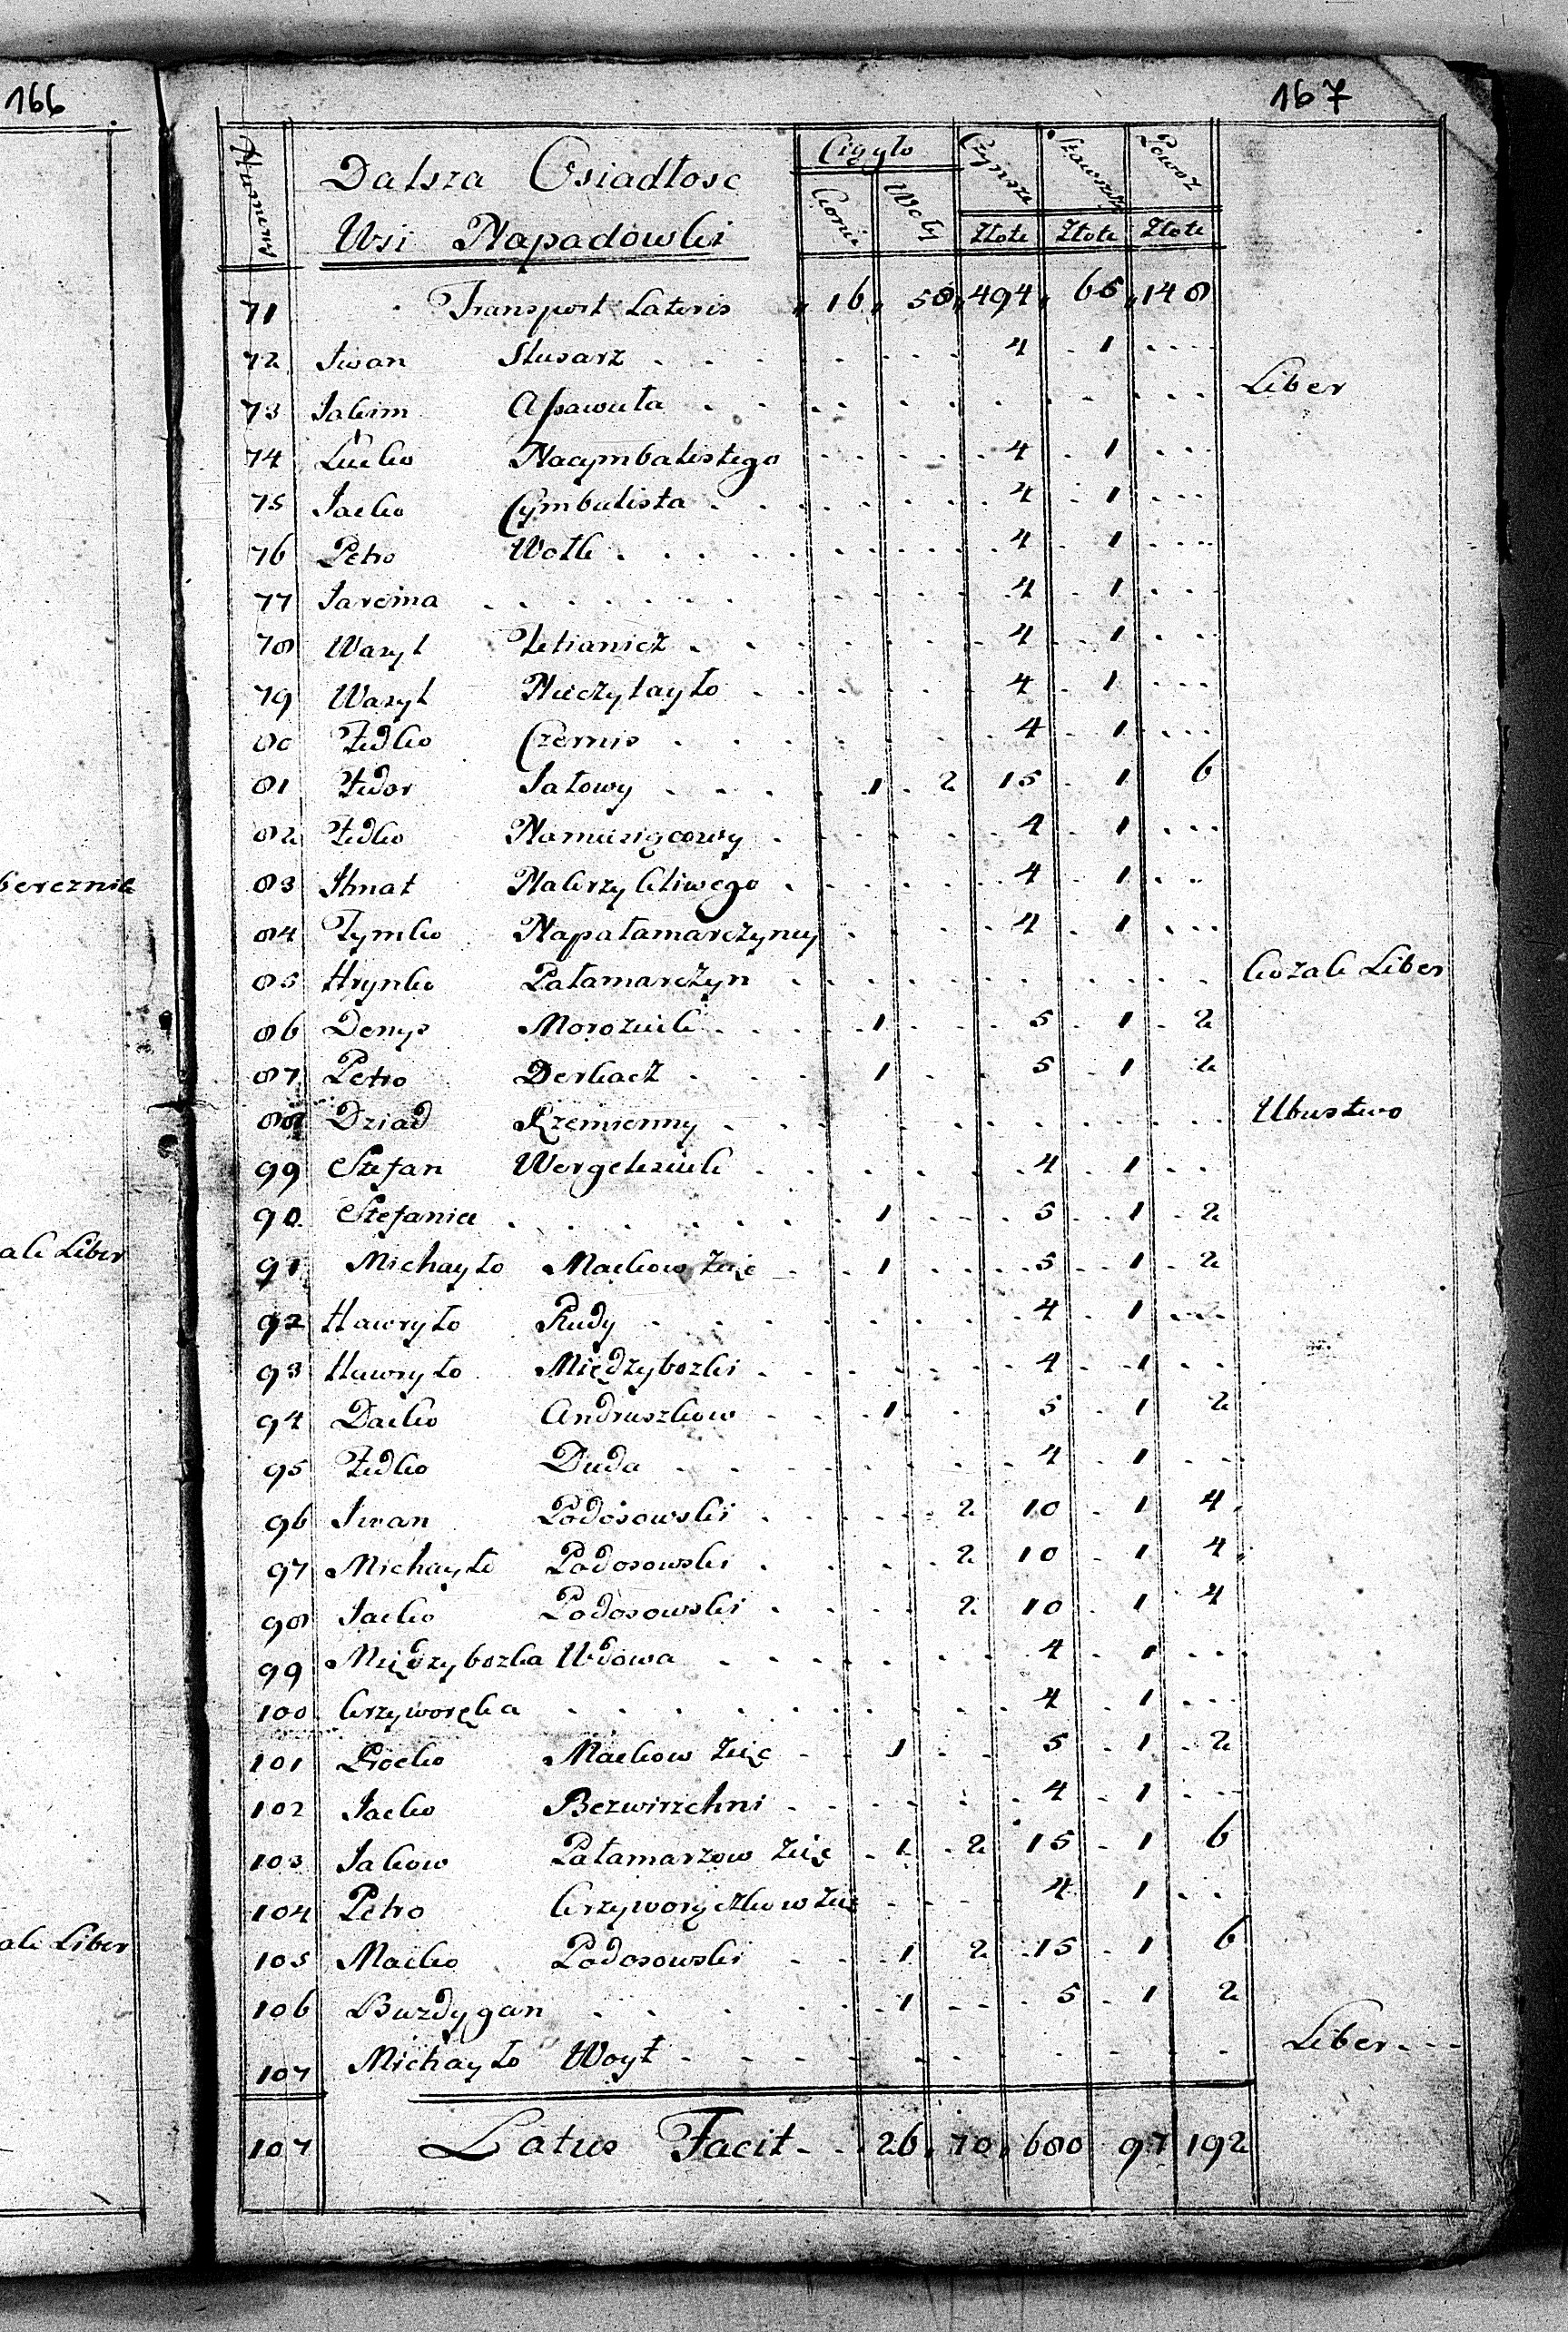 166
berezniк
ak Liber
ak Liber
167
Numero
Dalsza Osiadłosc
Wsi Napadowki
Ciggło
Konie Woły
Czynsze
Powoz
Złote Złote Złote
71 Transport Lateris 16 58 494 65 148
72 Iwan Slusarz 4 1
73 Jakim Assawuła Liber
74 Lucko Nacymbalistego 4 1
75 Jacko Cymbalista 4 1
76 Petro Wołk 4 1
77 Jarema 4 1
78 Wasyl Tetianicz 4 1
79 Wasyl Nieczytayło 4 1
80 Fedko Czernis 4 1
81 Fedor Jałowy 1 2 15 1 6
82 Fedko 4 1
83 Ihnat Nakrzykliwego 4 1
84 Tymko Napałamarczyney 4 1
85 Hrynko Pałamarczyn kozak Liber
86 Denys Morozuik 1 5 1 2
87 Petro Derkacz 1 5 1 2
88 Dziad Krzemienny Ubustwo
99 Stefan Wergeleziuk 4 1
90 Stefania 1 5 1 2
91 Michayło Mackow Zięc 1 5 1 2
92 Hawryło Rudy 4 1
93 Hawryło Międzybozki 4 1
94 Dacko Andruszkow 1 5 1 2
95 Fedko Duda 4 1
96 Iwan Podosowski 2 10 1 4
97 Michayło Podosowski 2 10 1 4
98 Jacko Podosowski 2 10 1 4
99 Międzybozka Wdowa 4 1
100 krzyworęka 4 1
101 Procko Mackow Zięc 1 5 1 2
102 Jacko Bezwirzchni 4 1
103 Jakow Pałamarzow Zięc 1 2 15 1 6
104 Petro krzyworyczkow Zięc 4 1
105 Macko Podosowski 1 2 15 1 6
106 Buzdygan 1 5 1 2
107 Michayło Woyt Liber
107 Latus Facit 26 70 680 97 192